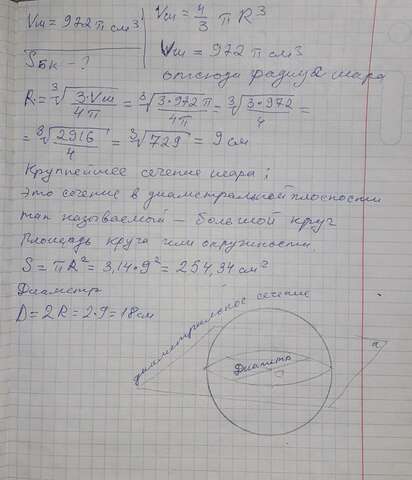 Vш = 972 π см³
Sбк - ?
Vш = 4/3 π R³
Vш = 972 π см³
отсюда радиус шара
R = ∛(3·Vш / 4π) = ∛(3·972 π / 4π) = ∛(3·972 / 4) =
= ∛(2916 / 4) = ∛729 = 9 см
Крупнейшее сечение шара:
это сечение в диаметральной плоскости
так называемой – большой круг
Площадь круга или окружности
S = πR² = 3,14·9² = 254,34 см²
Диаметр
D = 2R = 2·9 = 18 см
диаметральное сечение
Диаметр